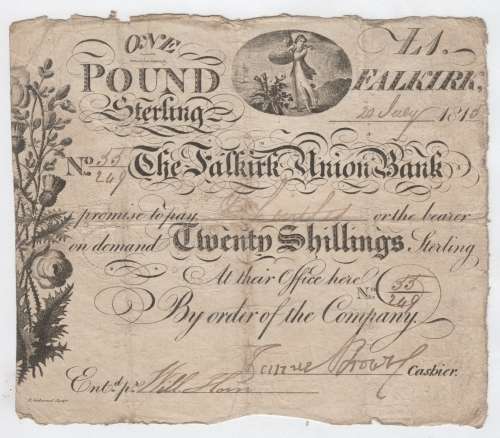 ONE
POUND
Sterling
£1.
FALKIRK,
20 July 1810
No. 55/249 The Falkirk Union Bank
promise to pay or the bearer
on demand Twenty Shillings Sterling
At their Office here
No. 55/249
By order of the Company.
Cashier.
Entd. pr. Will